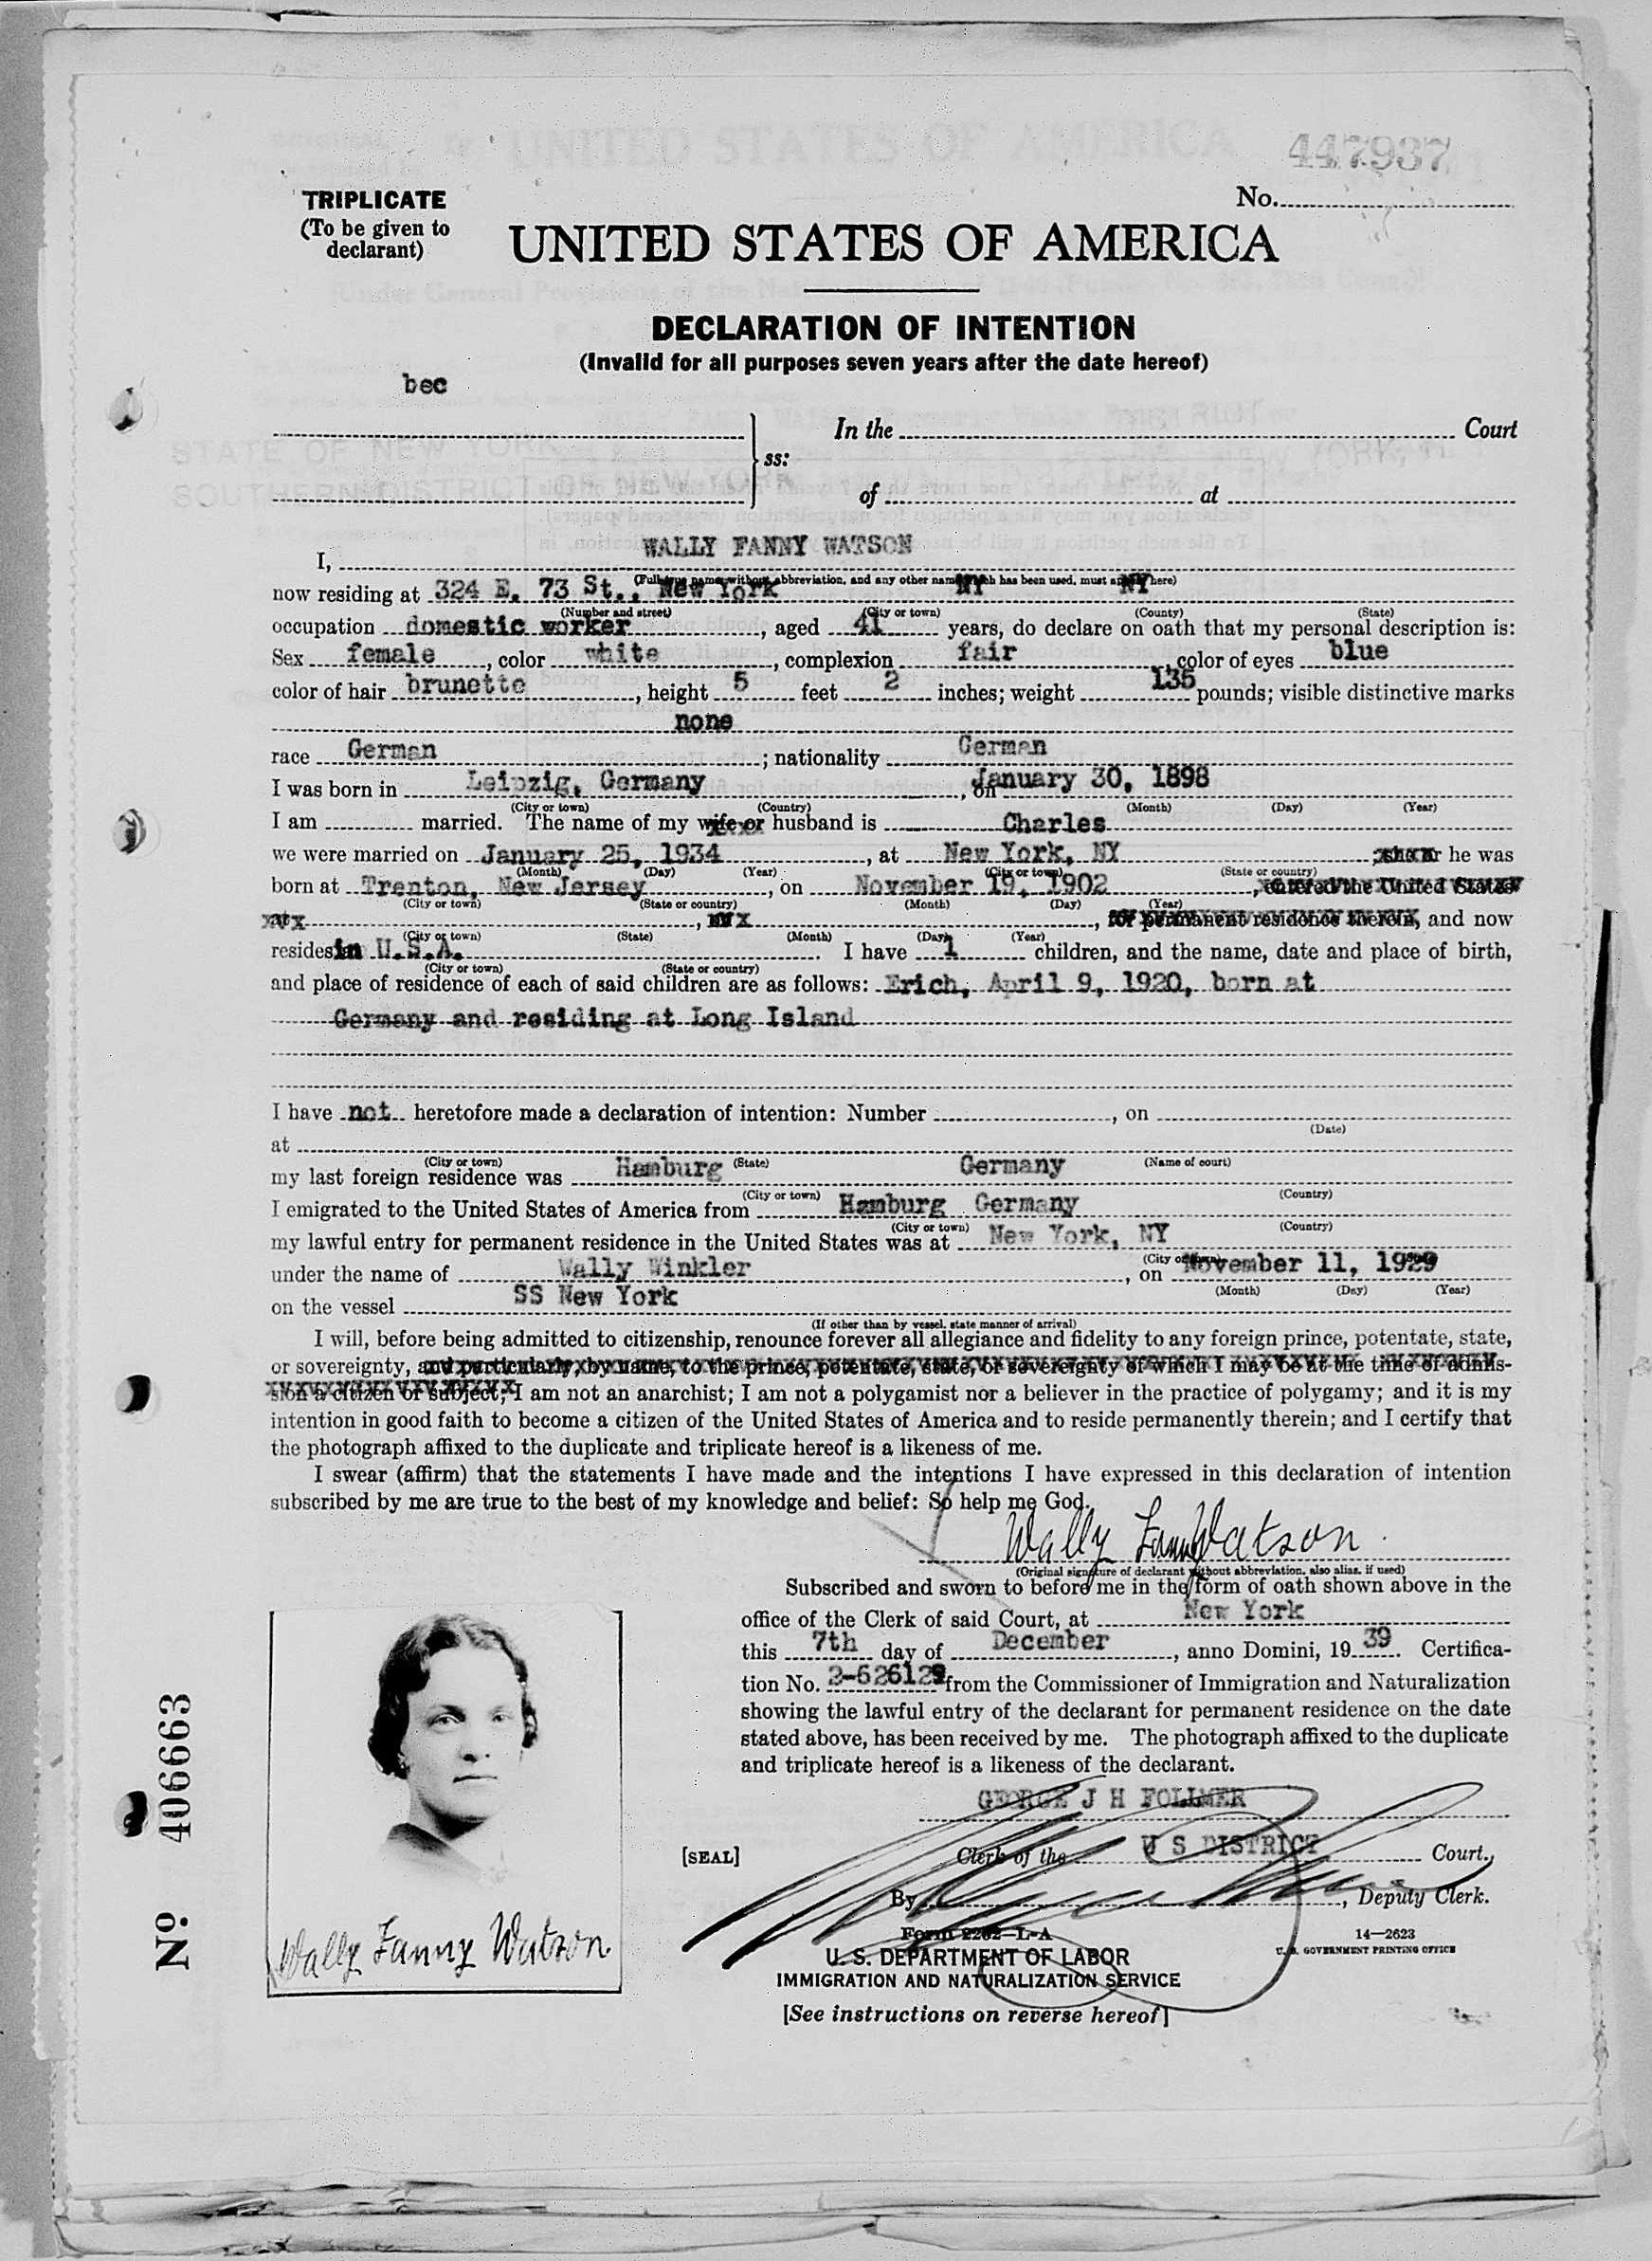 447937
TRIPLICATE
(To be given to
declarant)
No.
UNITED STATES OF AMERICA
DECLARATION OF INTENTION
(Invalid for all purposes seven years after the date hereof)
bec
In the Court
STATE OF NEW YORK
ss:
SOUTHERN DISTRICT OF NEW YORK
of at
I, WALLY FANNY WATSON
(Full true name, without abbreviation, and any other name which has been used, must appear here)
now residing at 324 E. 73 St., New York NY NY
(Number and street) (City or town) (County) (State)
occupation domestic worker, aged 41 years, do declare on oath that my personal description is:
Sex female, color white, complexion fair, color of eyes blue
color of hair brunette, height 5 feet 2 inches; weight 135 pounds; visible distinctive marks
none
race German; nationality German
I was born in Leipzig, Germany, on January 30, 1898
(City or town) (Country) (Month) (Day) (Year)
I am married. The name of my wife or husband is Charles
we were married on January 25, 1934, at New York, NY; she or he was
(Month) (Day) (Year) (City or town) (State or country)
born at Trenton, New Jersey, on November 19, 1902, entered the United States
(City or town) (State or country) (Month) (Day) (Year)
at, on, for permanent residence therein, and now
(City or town) (State) (Month) (Day) (Year)
resides in U.S.A. I have 1 children, and the name, date and place of birth,
(City or town) (State or country)
and place of residence of each of said children are as follows: Erich, April 9, 1920, born at
Germany and residing at Long Island
I have not heretofore made a declaration of intention: Number, on
(Date)
at
(City or town) (State) (Name of court)
my last foreign residence was Hamburg Germany
(City or town) (Country)
I emigrated to the United States of America from Hamburg Germany
(City or town) (Country)
my lawful entry for permanent residence in the United States was at New York, NY
(City or town)
under the name of Wally Winkler, on November 11, 1929
(Month) (Day) (Year)
on the vessel SS New York
(If other than by vessel, state manner of arrival)
I will, before being admitted to citizenship, renounce forever all allegiance and fidelity to any foreign prince, potentate, state,
or sovereignty, and particularly, by name, to the prince, potentate, state, or sovereignty of which I may be at the time of admis-
sion a citizen or subject; I am not an anarchist; I am not a polygamist nor a believer in the practice of polygamy; and it is my
intention in good faith to become a citizen of the United States of America and to reside permanently therein; and I certify that
the photograph affixed to the duplicate and triplicate hereof is a likeness of me.
I swear (affirm) that the statements I have made and the intentions I have expressed in this declaration of intention
subscribed by me are true to the best of my knowledge and belief: So help me God.
Wally Fanny Watson
(Original signature of declarant without abbreviation, also alias, if used)
Subscribed and sworn to before me in the form of oath shown above in the
office of the Clerk of said Court, at New York
this 7th day of December, anno Domini, 1939. Certifica-
tion No. 2-626129 from the Commissioner of Immigration and Naturalization
showing the lawful entry of the declarant for permanent residence on the date
stated above, has been received by me. The photograph affixed to the duplicate
and triplicate hereof is a likeness of the declarant.
GEORGE J H FOLLMER
[SEAL]
Clerk of the U S DISTRICT Court.
By, Deputy Clerk.
Form 2202—L-A
14—2623
U. S. GOVERNMENT PRINTING OFFICE
U. S. DEPARTMENT OF LABOR
IMMIGRATION AND NATURALIZATION SERVICE
[See instructions on reverse hereof]
Wally Fanny Watson
No 406663